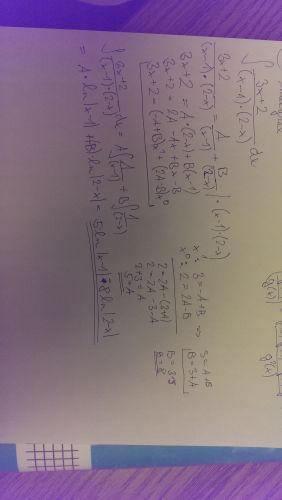 ∫ 3x+2 / (x-1)·(2-x) dx
3x+2 / (x-1)·(2-x) = A / (x-1) + B / (2-x) | · (x-1)·(2-x)
3x+2 = A·(2-x) + B(x-1)
3x+2 = 2A - Ax + Bx - B
3x+2 = (-A+B)x¹ + (2A-B)x⁰
x¹: 3 = -A+B ⇒
x⁰: 2 = 2A-B
3 = -A+B
B = 3+A
2 = 2A - (3+A)
2 = 2A - 3 - A
2+3 = A
5 = A
B = 3+5
B = 8
∫ 3x+2 / (x-1)·(2-x) dx = A ∫ 1 / (x-1) + B ∫ 1 / (2-x)
= A·ln|x-1| + B·ln|2-x| = 5 ln|x-1| - 8 ln|2-x|